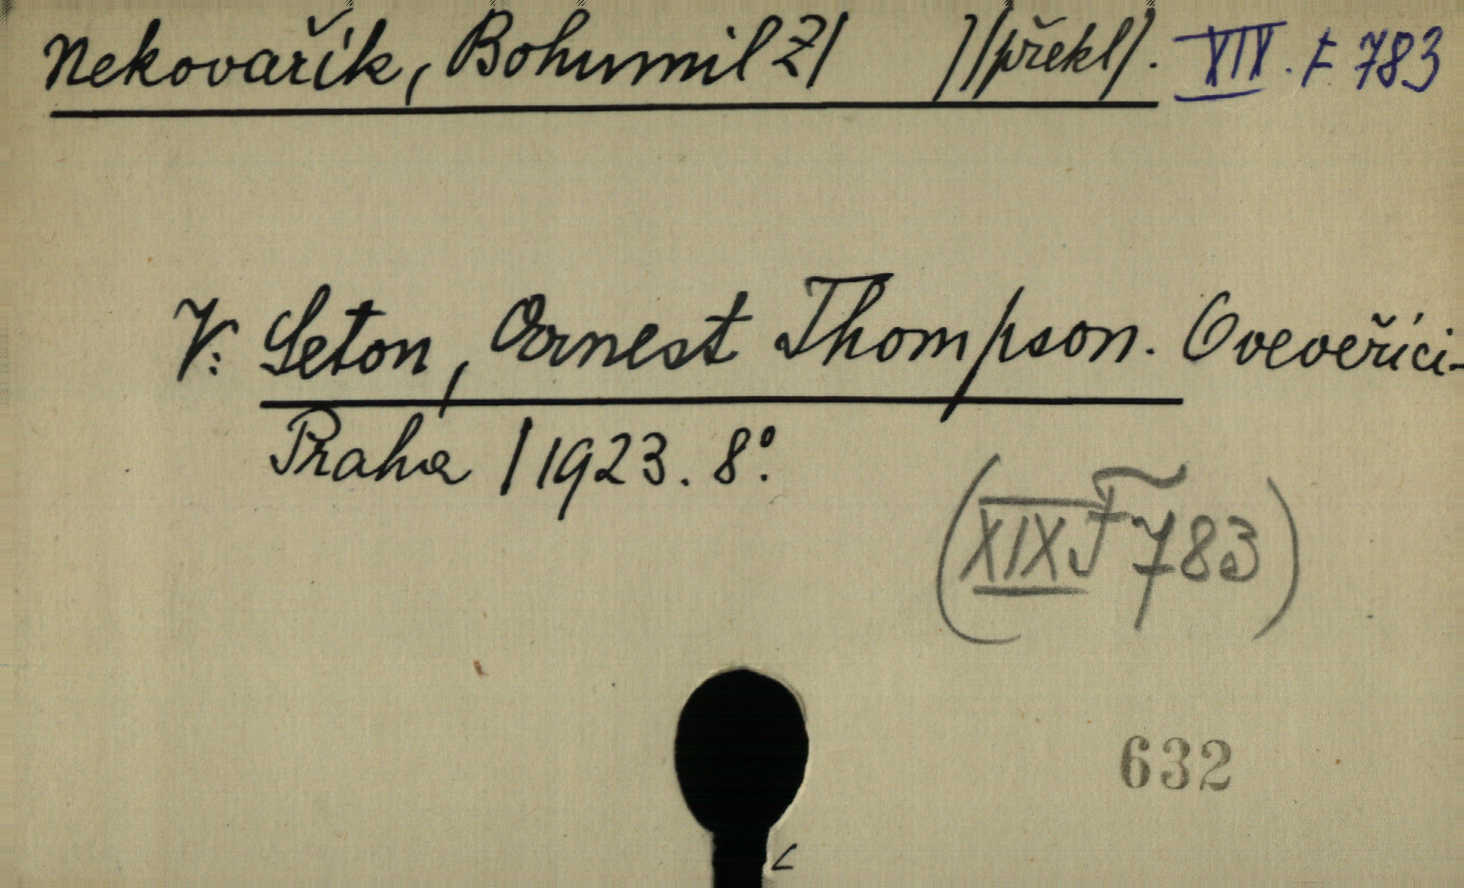 Nekovařík, Bohumil Z/ //překl/. XIX. F 783
V: Seton, Ernest Thompson. O veveřici-
Praha /1923. 8°.
(XIX F 783)
632